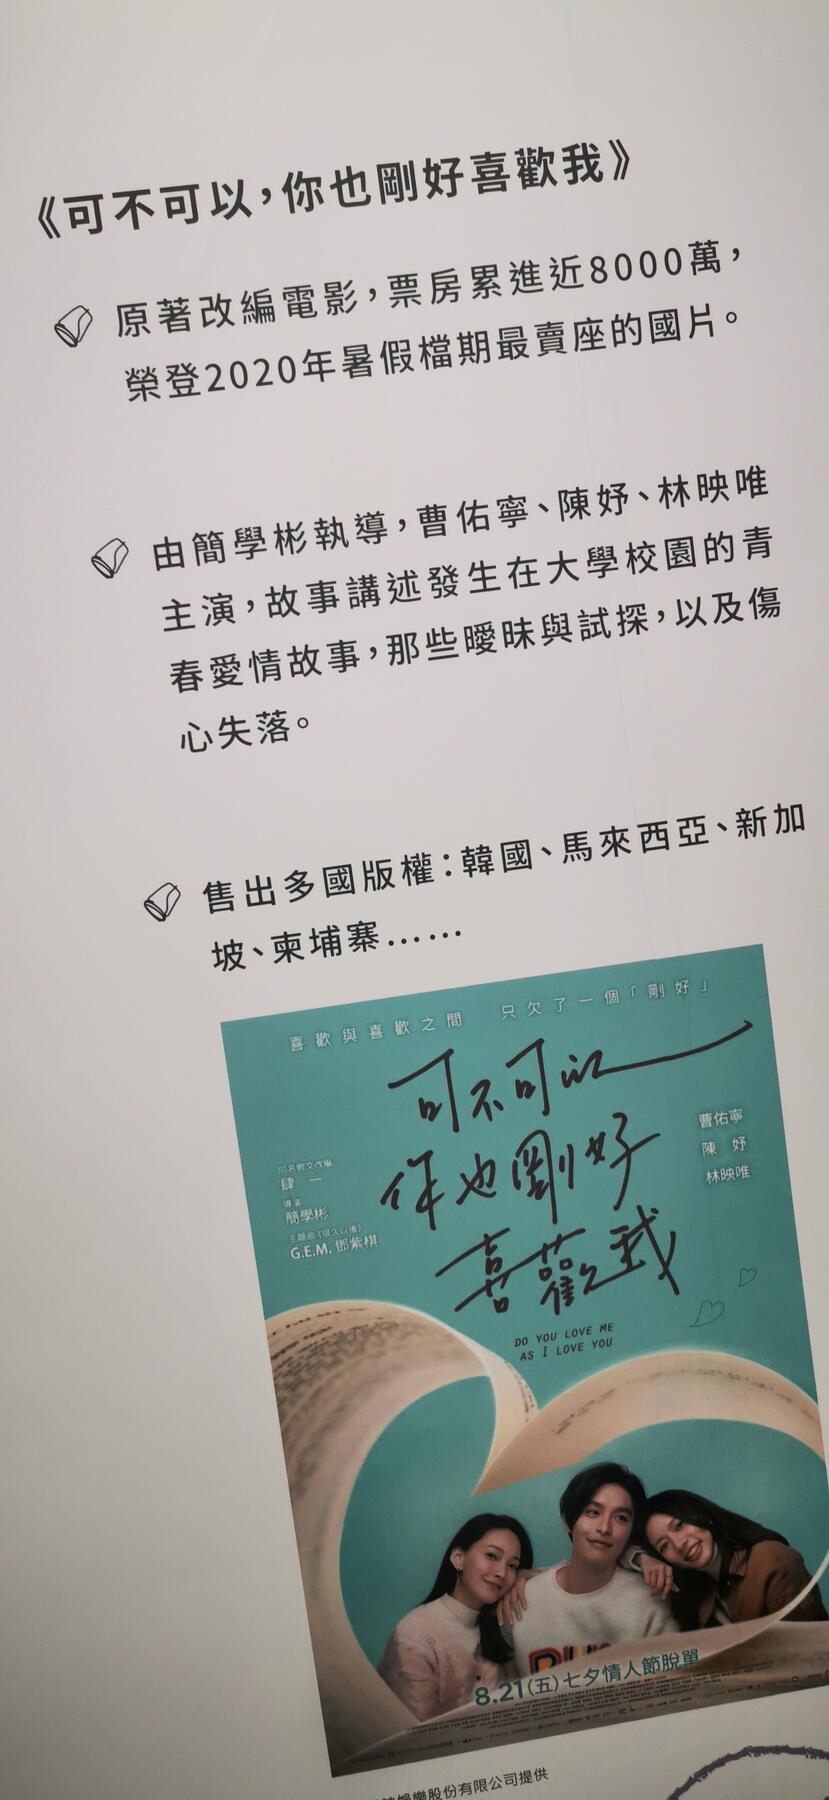 《可不可以，你也剛好喜歡我》
原著改編電影，票房累進近8000萬，
榮登2020年暑假檔期最賣座的國片。
由簡學彬執導，曹佑寧、陳妤、林映唯
主演，故事講述發生在大學校園的青
春愛情故事，那些曖昧與試探，以及傷
心失落。
售出多國版權：韓國、馬來西亞、新加
坡、柬埔寨……
喜歡與喜歡之間 只欠了一個「剛好」
可不可以
你也剛好
喜歡我
曹佑寧
陳妤
林映唯
同名散文改編
肆一
導演
簡學彬
主題曲《很久以後》
G.E.M. 鄧紫棋
DO YOU LOVE ME
AS I LOVE YOU
8.21(五)七夕情人節脫單
娛樂股份有限公司提供